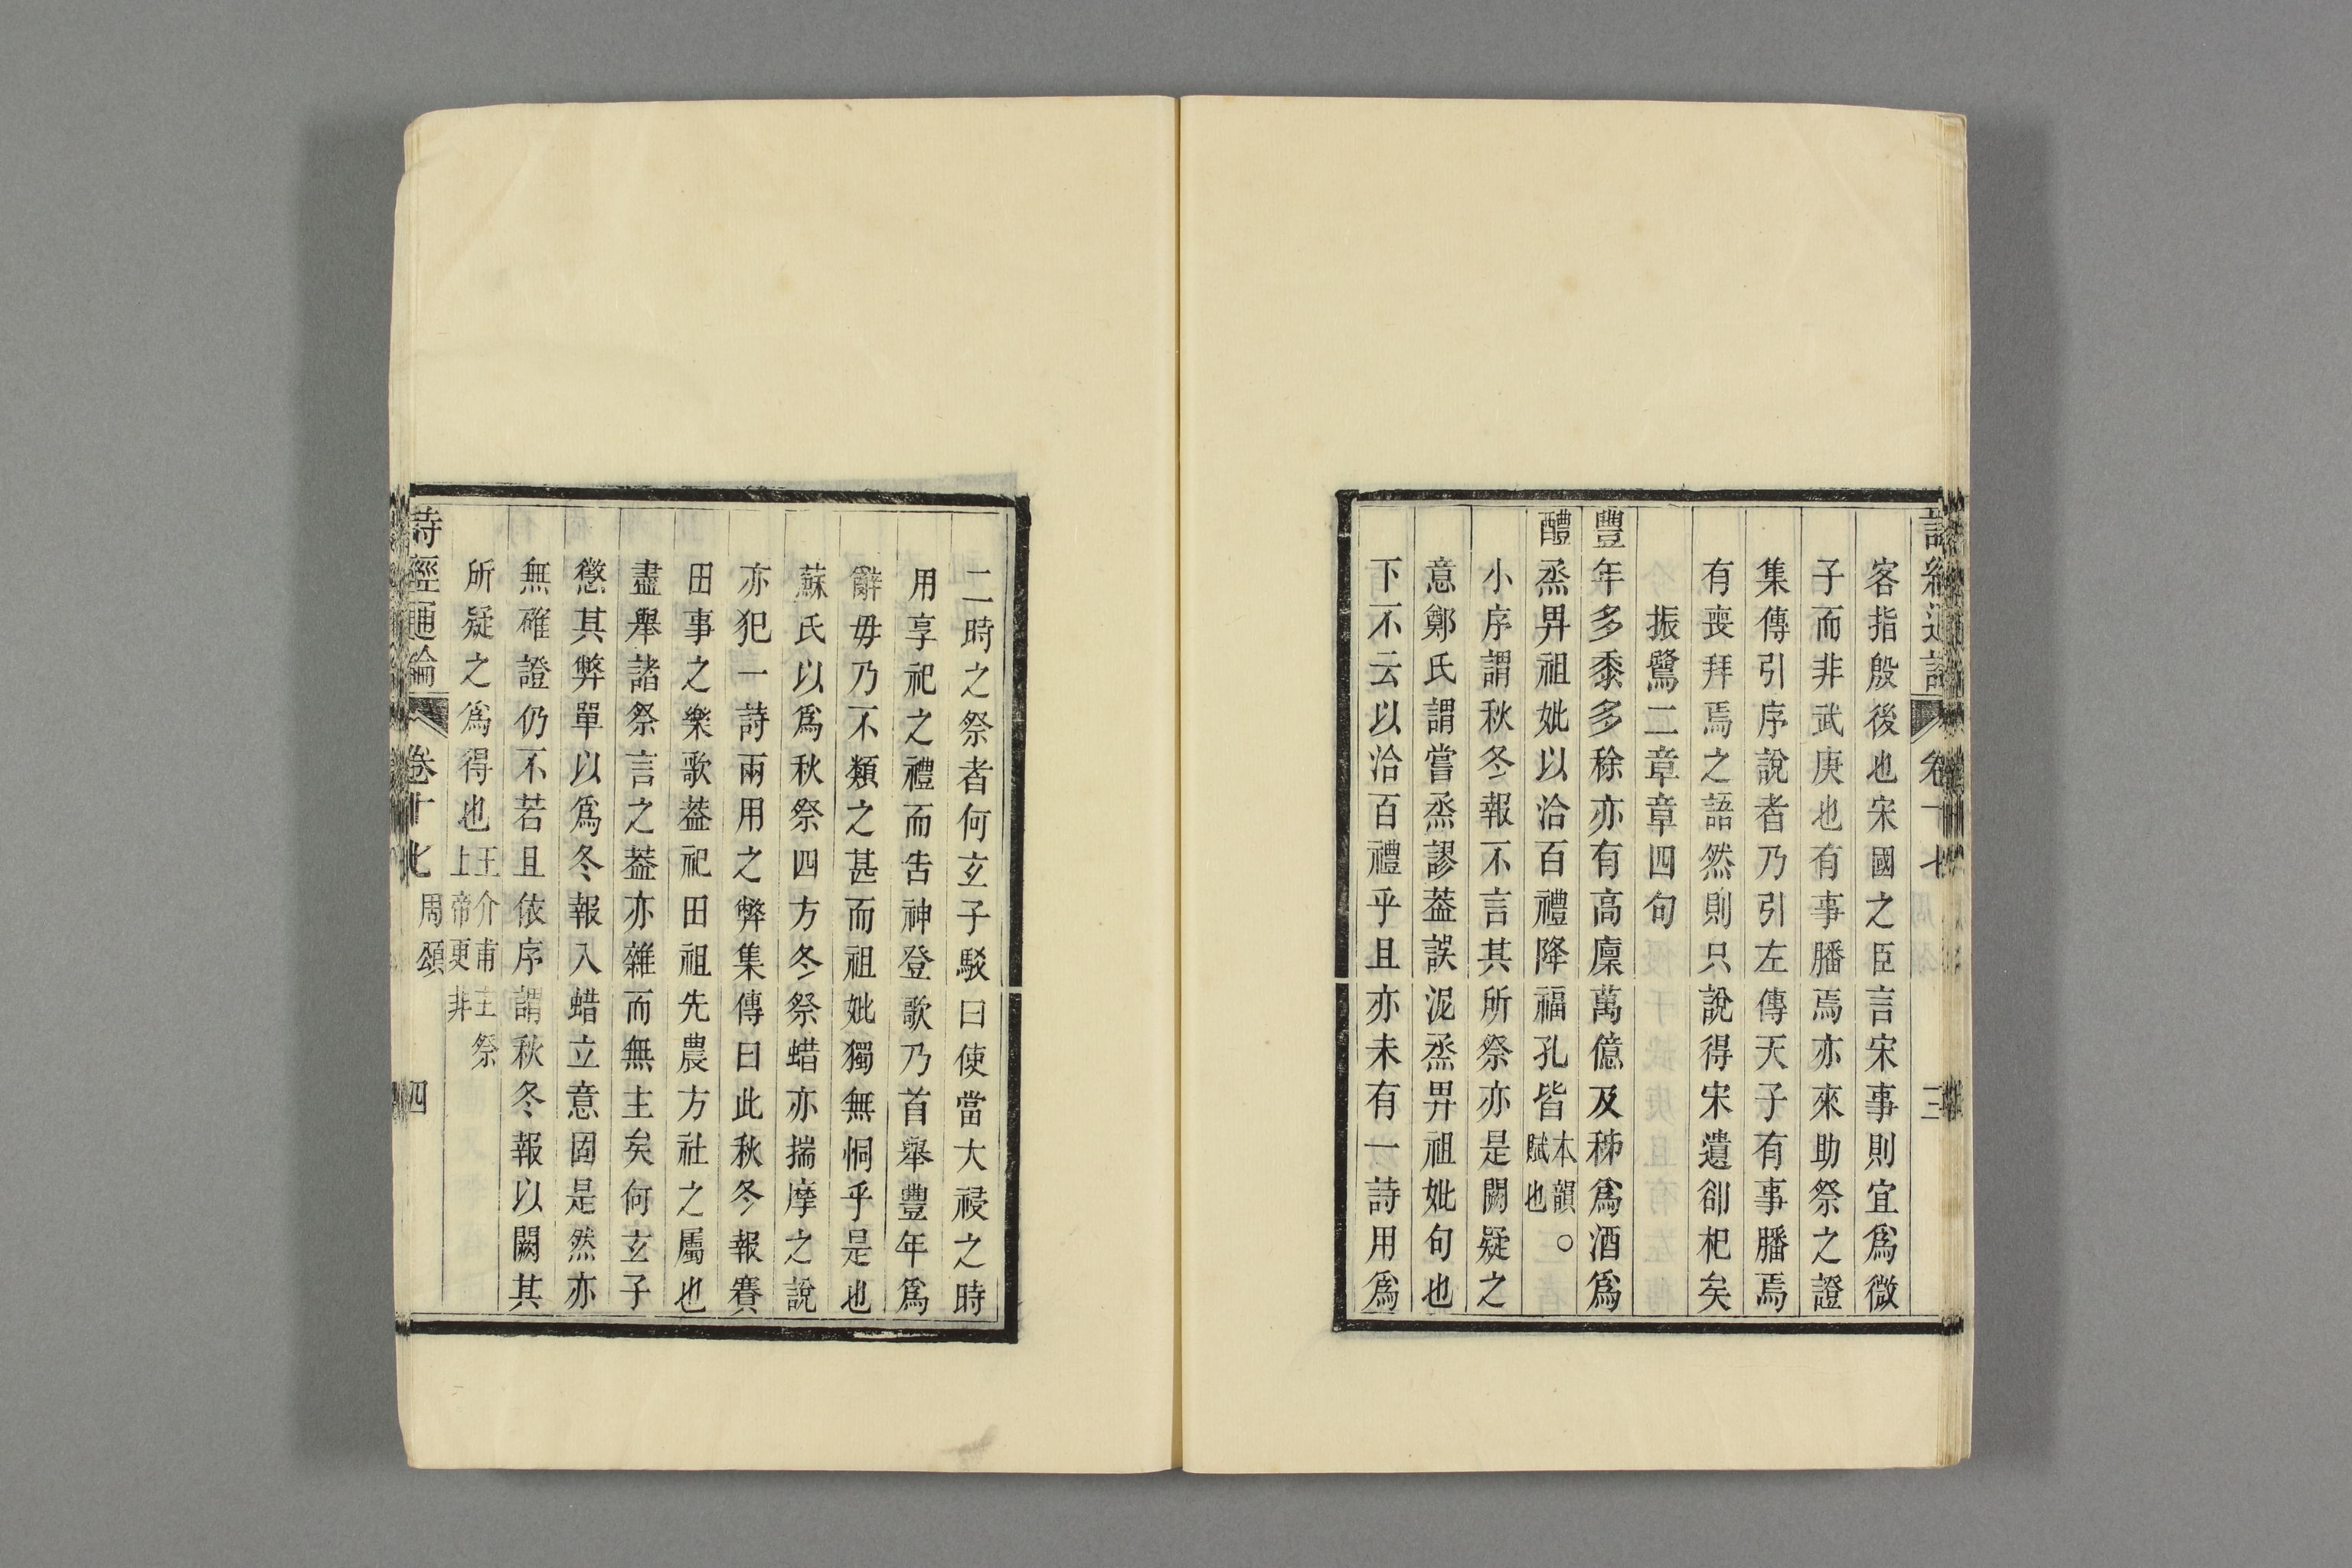 詩經通論 卷十七 三
客指殷後也宋國之臣言宋事則宜爲微
子而非武庚也有事膰焉亦來助祭之證
集傳引序說者乃引左傳天子有事膰焉
有喪拜焉之語然則只說得宋遺卻杞矣
振鷺二章章四句
豐年多黍多稌亦有高廩萬億及秭爲酒爲
醴烝畀祖妣以洽百禮降福孔皆本韻賦也○
小序謂秋冬報不言其所祭亦是闕疑之
意鄭氏謂嘗烝謬葢誤泥烝畀祖妣句也
下不云以洽百禮乎且亦未有一詩用爲
二時之祭者何玄子駁曰使當大祲之時
用享祀之禮而告神登歌乃首舉豐年爲
辭毋乃不類之甚而祖妣獨無恫乎是也
蘇氏以爲秋祭四方冬祭蜡亦揣摩之說
亦犯一詩兩用之弊集傳曰此秋冬報賽
田事之樂歌葢祀田祖先農方社之屬也
盡舉諸祭言之葢亦雜而無主矣何玄子
懲其弊單以爲冬報入蜡立意固是然亦
無確證仍不若且依序謂秋冬報以闕其
所疑之爲得也王介甫主祭上帝更非
詩經通論 卷十七 周頌 四